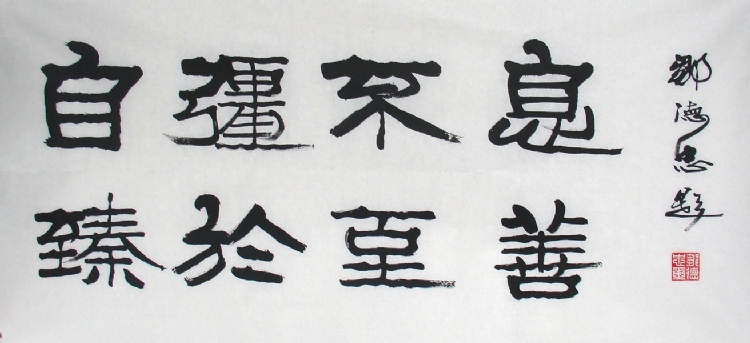 自彊不息
臻於至善
邹德忠题